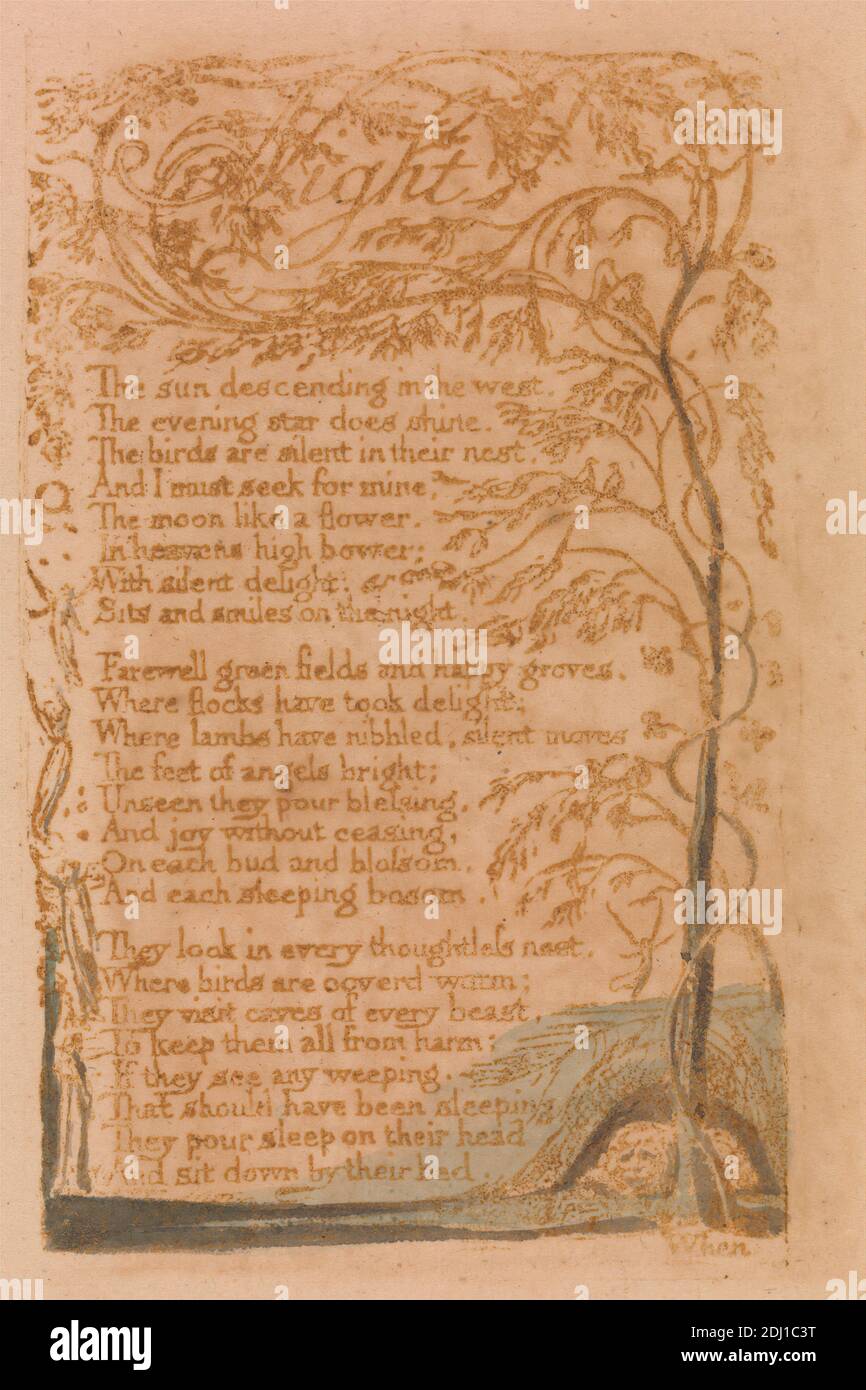 Night
The sun descending in the west.
The evening star does shine.
The birds are silent in their nest,
And I must seek for mine,
The moon like a flower.
In heavens high bower;
With silent delight,
Sits and smiles on the night.
Farewell green fields and happy groves,
Where flocks have took delight;
Where lambs have nibbled, silent moves
The feet of angels bright;
Unseen they pour blessing,
And joy without ceasing,
On each bud and blossom,
And each sleeping bosom.
They look in every thoughtless nest.
Where birds are coverd warm;
They visit caves of every beast,
To keep them all from harm;
If they see any weeping.
That should have been sleeping
They pour sleep on their head
And sit down by their bed.
When
alamy
alamy
alamy
a
a
a
a
a
a
alamy
Image ID: 2DJ1C3T
www.alamy.com